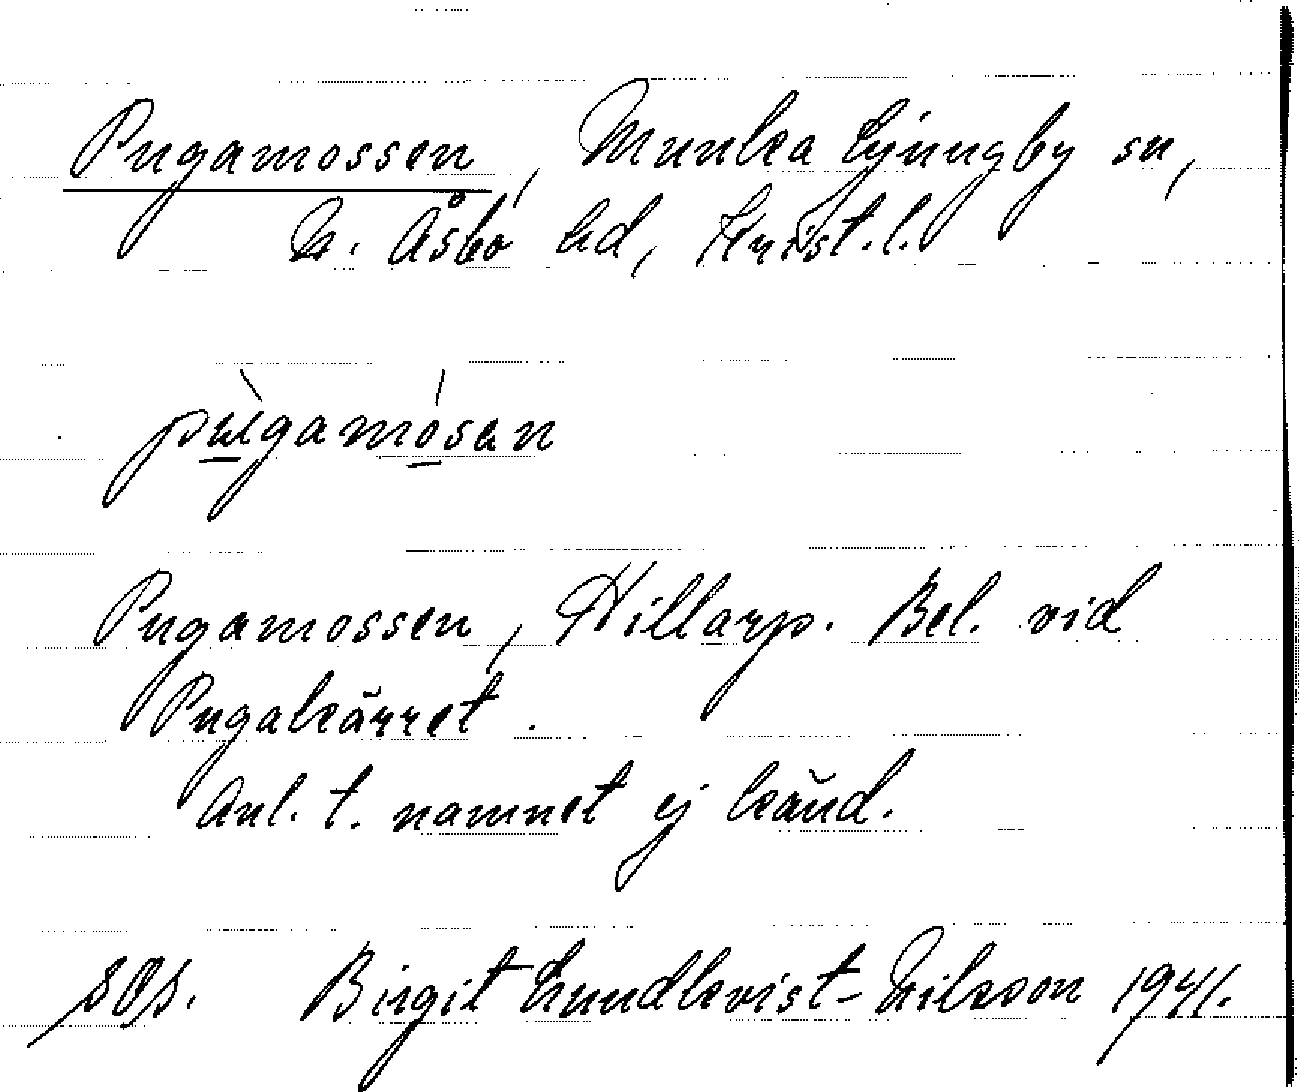 Pugamossen, Munka Ljungby sn,
N. Åsbo hd, Krist. l.
pùgamósan
Pugamossen, Hillarp. Bel. vid
Pugakärret.
Anl. t. namnet ej känd.
Birgit Lundkvist-Nilsson 1941.